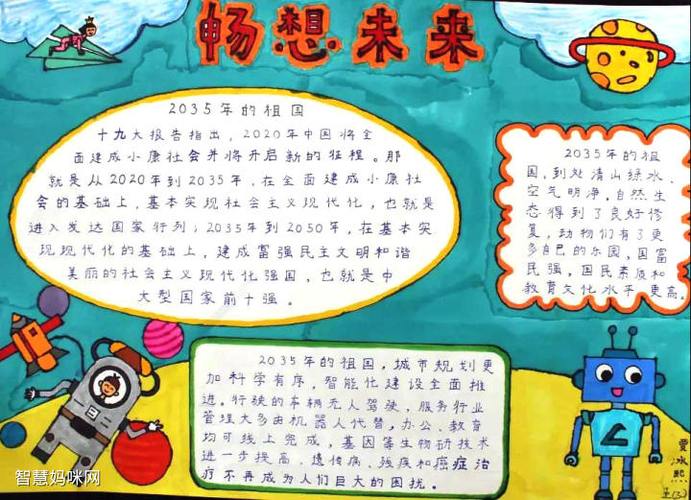 畅想未来
2035年的祖国
十九大报告指出，2020年中国将全
面建成小康社会并将开启新的征程。那
就是从2020年到2035年，在全面建成小康社
会的基础上，基本实现社会主义现代化，也就是
进入发达国家行列；2035年到2050年，在基本实
现现代化的基础上，建成富强民主文明和谐
美丽的社会主义现代化强国，也就是中
大型国家前十强。
2035年的祖
国，到处清山绿水，
空气明净，自然生
态得到了良好修
复，动物们有了更
多自己的乐园，国富
民强，国民素质和
教育文化水平更高。
2035年的祖国，城市规划更
加科学有序，智能化建设全面推
进。行驶的车辆无人驾驶，服务行业
管理大多由机器人代替，办公、教育
均可线上完成，基因等生物研技术
进一步提高，遗传病、残疾和癌症治
疗不再成为人们巨大的困扰。
智慧妈咪网